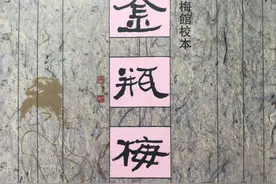 金瓶梅
梅館校本